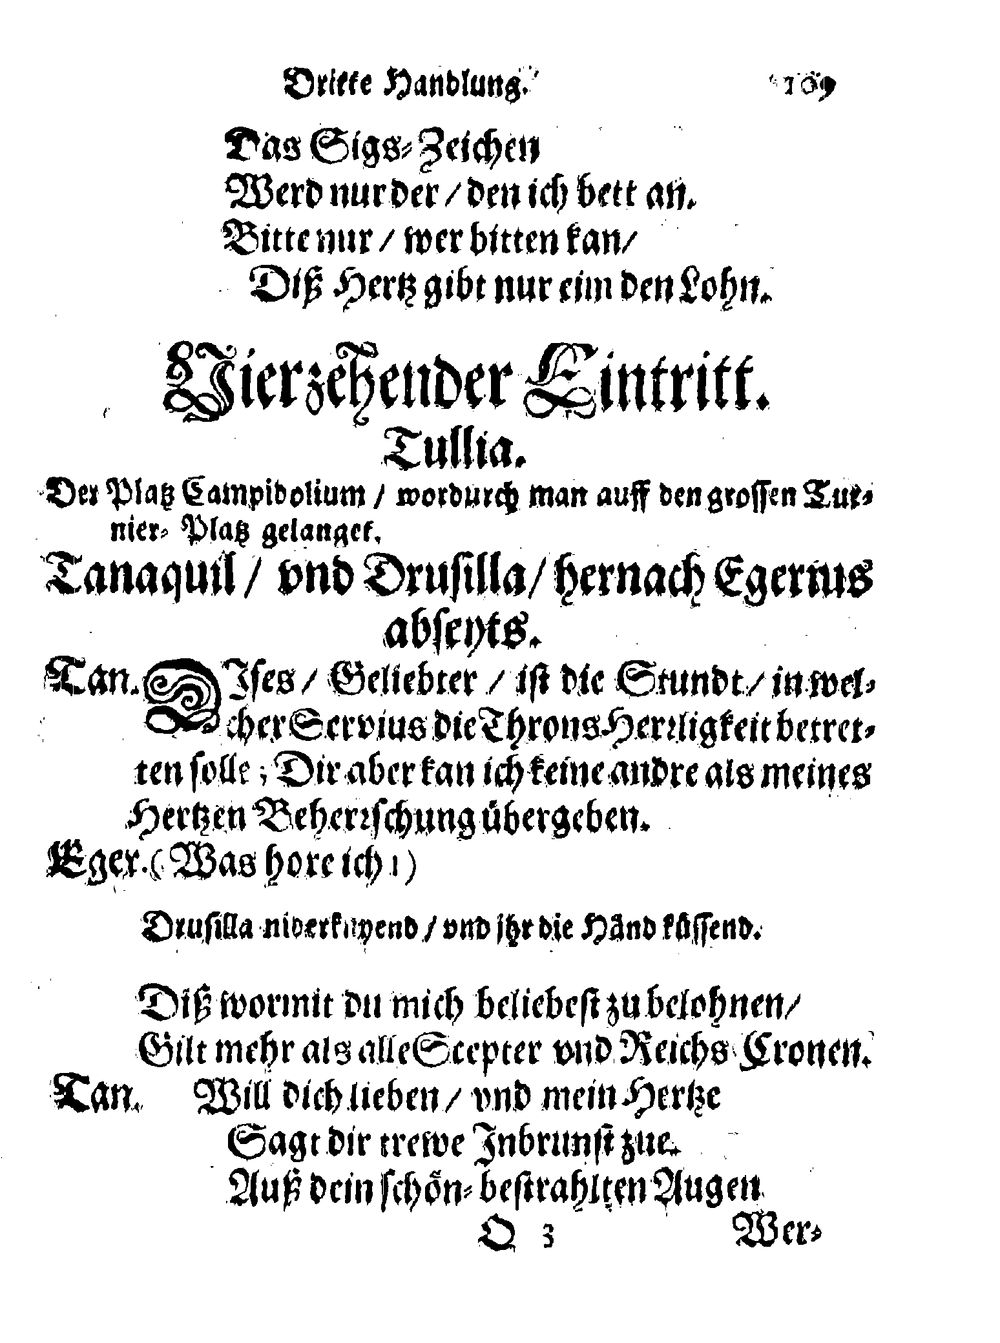 Dritte Handlung. 109
Das Sigs-Zeichen
Werd nur der / den ich bett an.
Bitte nur / wer bitten kan /
Diß Hertz gibt nur eim den Lohn.
Vierzehender Eintritt.
Tullia.
Der Platz Campidolium / wordurch man auff den grossen Tur-
nier-Platz gelanget.
Tanaquil / vnd Drusilla / hernach Egerius
abseyts.
Tan. DIses / Geliebter / ist die Stundt / in wel-
cher Servius die Throns Herrligkeit betret-
ten solle ; Dir aber kan ich keine andre als meines
Hertzen Beherrschung übergeben.
Eger. ( Was hore ich ! )
Drusilla niderknyend / vnd jhr die Händ küssend.
Diß wormit du mich beliebest zu belohnen /
Gilt mehr als alle Scepter vnd Reichs Cronen.
Tan. Will dich lieben / vnd mein Hertze
Sagt dir trewe Inbrunst zue.
Auß dein schön-bestrahlten Augen
O 3 Wer-